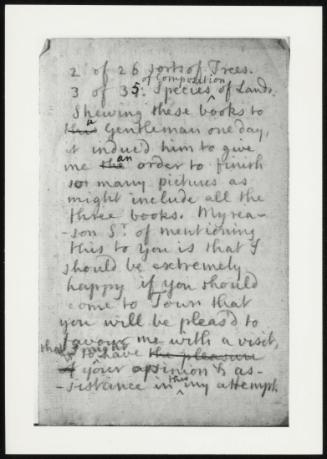 2 of 26 sorts of Trees.
of Composition
3 of 35. Species ^ of Lands.
Shewing these books to
this a Gentleman one day,
it induced him to give
me the an order to finish
so many pictures as
might include all the
three books. My rea-
-son Sr. of mentioning
this to you is that I
should be extremely
happy if you should
come to Town that
you will be pleas'd to
favour me with a visit,
that I might
to have the pleasure
of your opinion & as-
-sistance in this ^ my attempt.